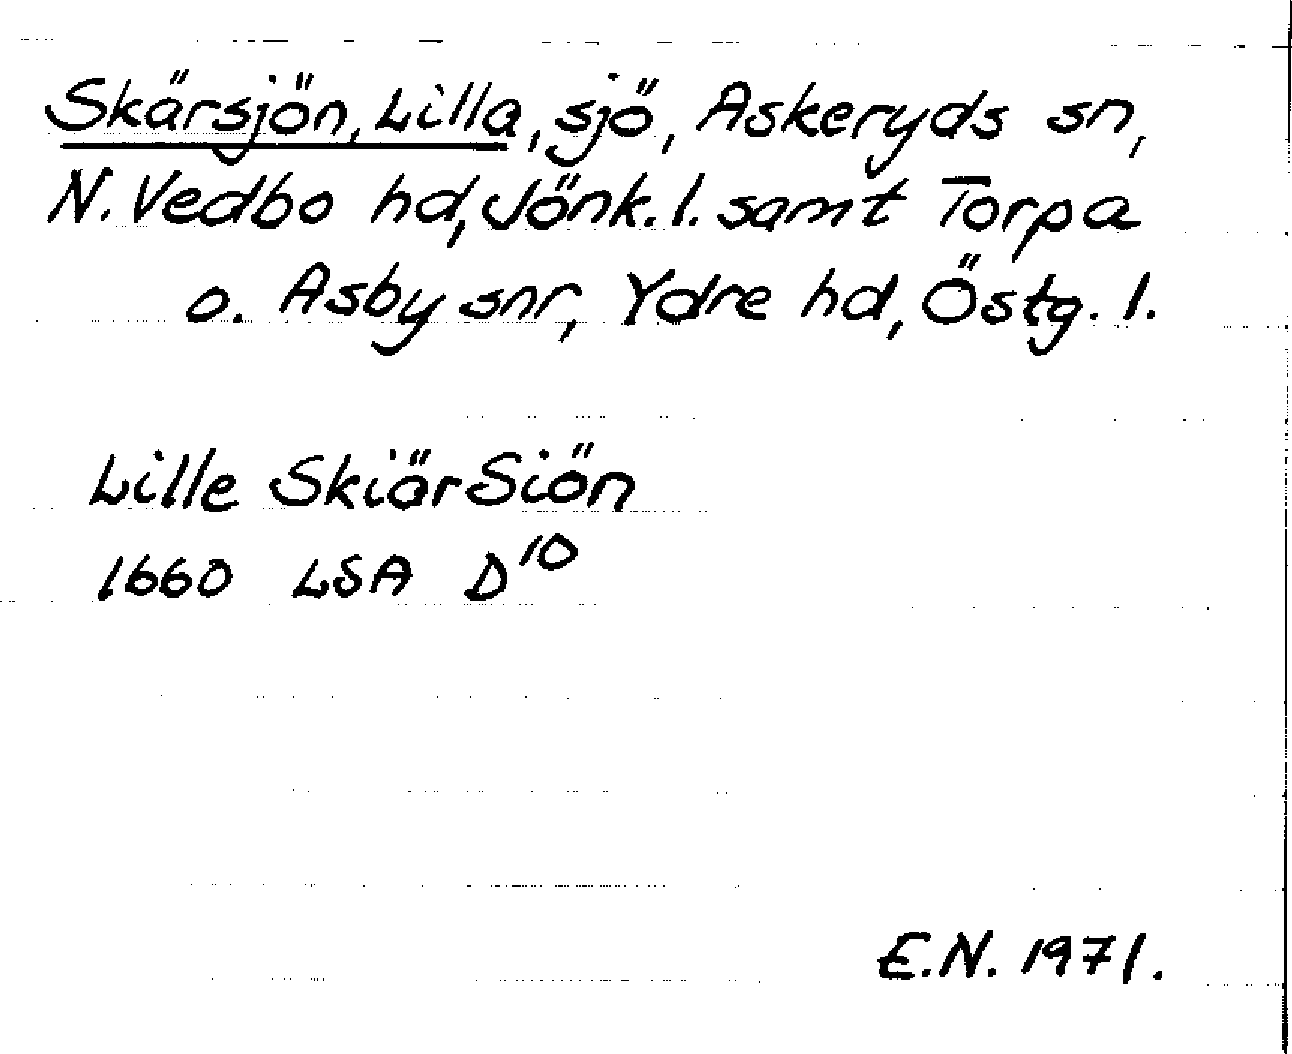 Skärsjön, Lilla, sjö, Askeryds sn,
N. Vedbo hd, Jönk. l. samt Torpa
o. Asby snr, Ydre hd, Östg. l.
Lille SkiärSiön
1660 LSA D¹⁰
E.N. 1971.